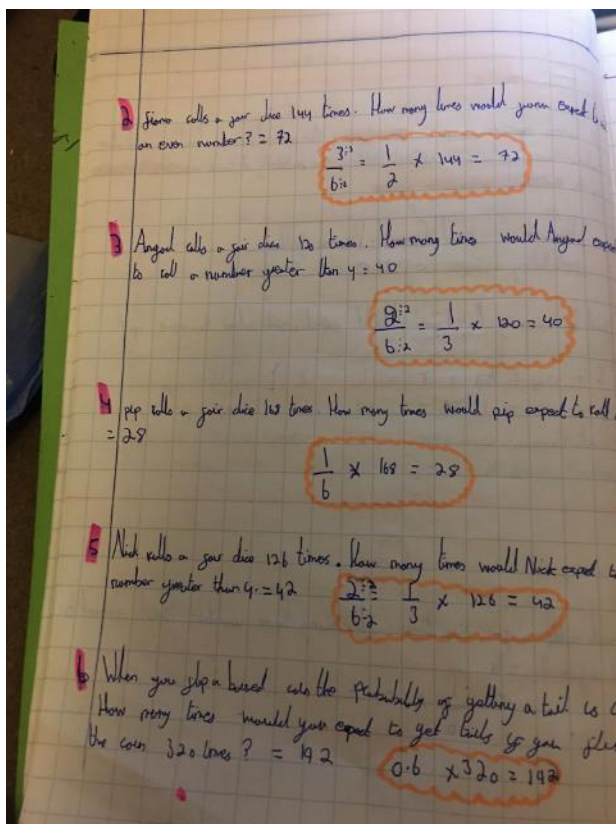 2 rolls a fair dice 144 times. How many times would you expect
an even number? = 72
3÷3/6÷2 = 1/2 × 144 = 72
3 Angad rolls a fair dice 120 times. How many times would Angad expect
to roll a number greater than 4 = 40
2÷2/6÷2 = 1/3 × 120 = 40
4 pip rolls a fair dice 168 times How many times would pip expect to roll
= 28
1/6 × 168 = 28
5 Nick rolls a fair dice 126 times. How many times would Nick expect
number greater than 4. = 42
2÷2/6÷2 = 1/3 × 126 = 42
6 When you flip a biased coin the probability of getting a tail is
How many times would you expect to get tails if you
the coin 320 times? = 192
0.6 × 320 = 192